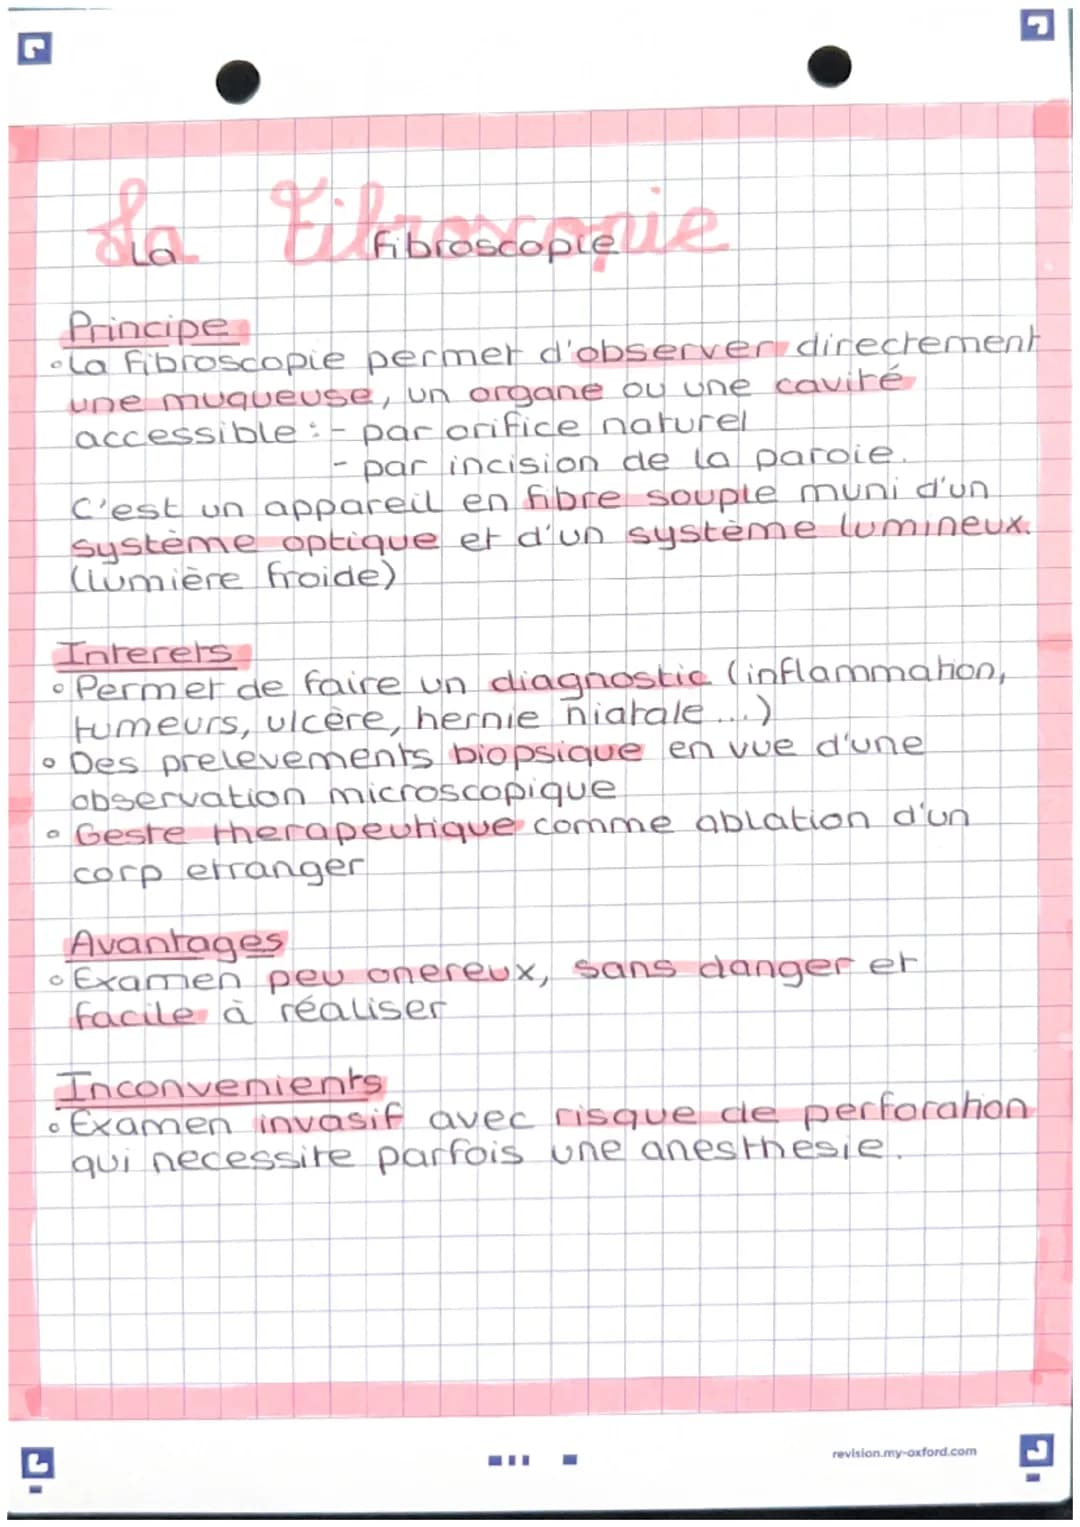 La Fibroscopie
La Fibroscopie
Principe
•La fibroscopie permet d'observer directement
une muqueuse, un organe ou une cavité
accessible : - par orifice naturel
- par incision de la paroie.
C'est un appareil en fibre souple muni d'un
système optique et d'un système lumineux.
(lumière froide)
Interets
•Permet de faire un diagnostic (inflammation,
tumeurs, ulcère, hernie hiatale...)
• Des prelevements biopsique en vue d'une
observation microscopique
• Geste therapeutique comme ablation d'un
corp etranger
Avantages
•Examen peu onereux, sans danger et
facile à réaliser
Inconvenients
•Examen invasif avec risque de perforation
qui necessite parfois une anesthesie.
revision.my-oxford.com